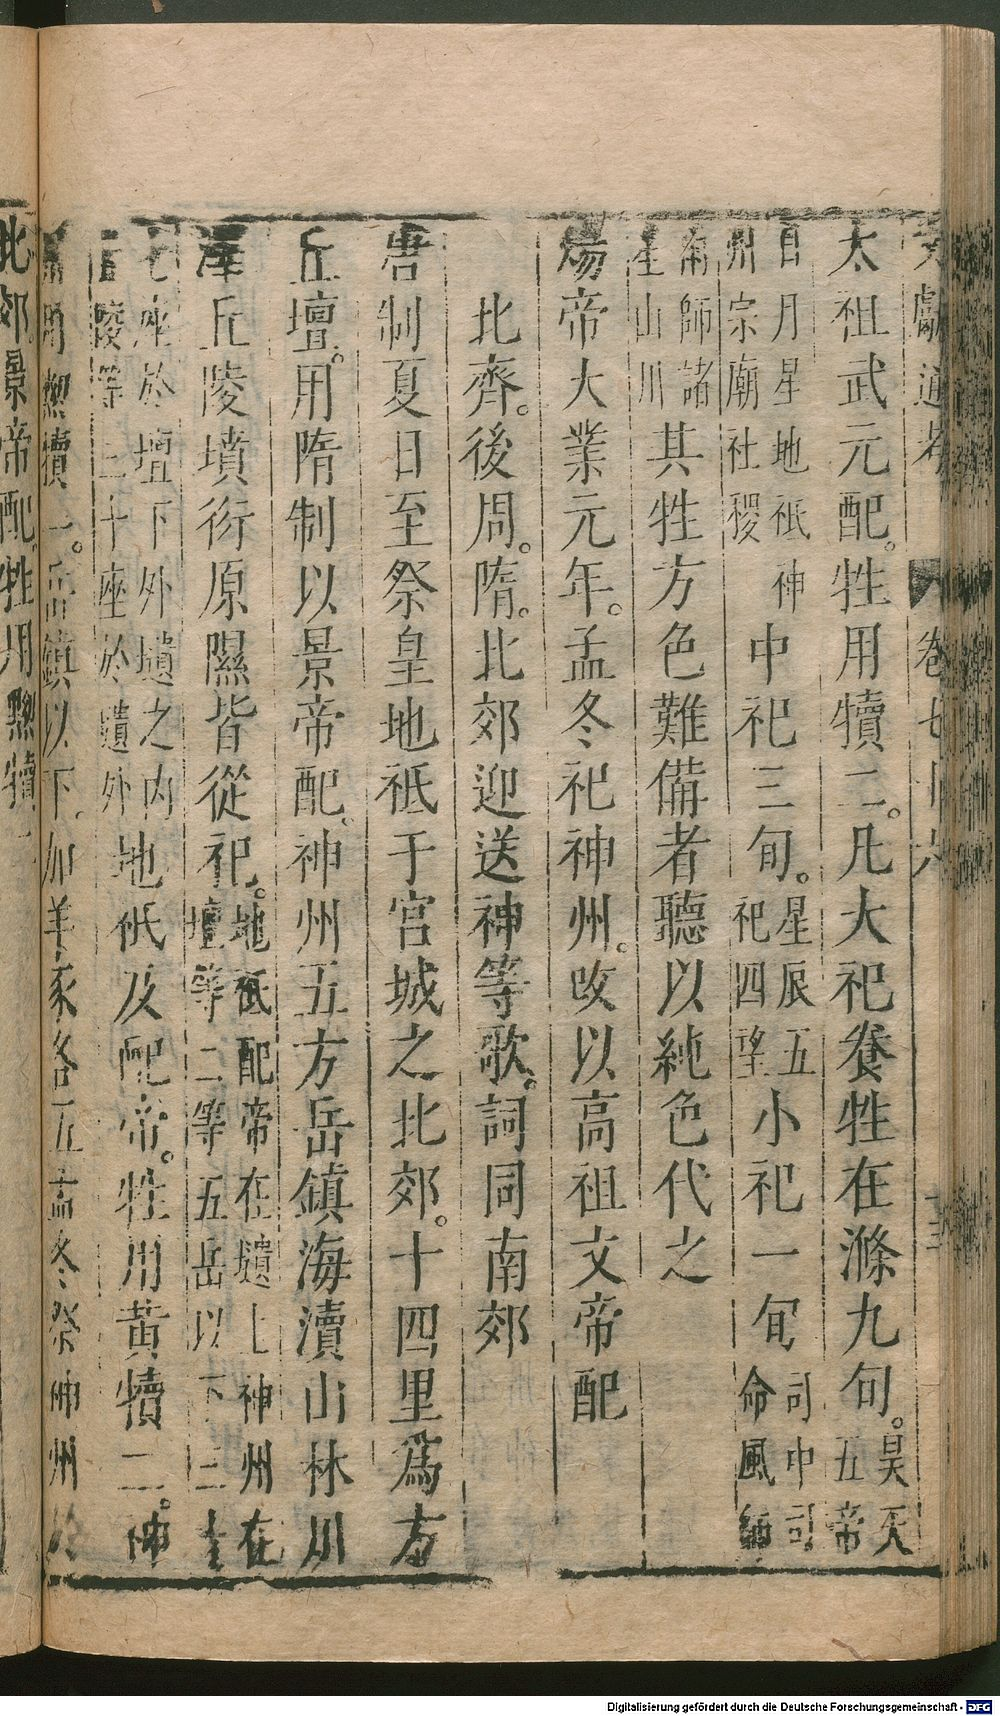 文獻通考 卷七十六
太祖武元配。牲用犢二。凡大祀養牲在滌九旬。昊天五帝
日月星地祇神州宗廟社稷中祀三旬。星辰五祀四望小祀一旬司中司命風師
雨師諸星山川其牲方色難備者聽以純色代之
煬帝大業元年。孟冬祀神州。改以高祖文帝配
北齊。後周。隋。北郊迎送神等歌。詞同南郊
唐制夏日至祭皇地祇于宮城之北郊。十四里爲方
丘壇。用隋制以景帝配。神州五方岳鎮海瀆山林川
澤丘陵墳衍原隰皆從祀。地祇配帝在壇上神州在壇等二等五岳以下三
七座於壇下外壝之內丘陵等三十座於壝外地祇及配帝。牲用黃犢二。神
州用黝犢一。岳鎮以下。加羊豕各五孟冬祭神州於
北郊景帝配。牲用黝犢二
Digitalisierung gefördert durch die Deutsche Forschungsgemeinschaft - DFG